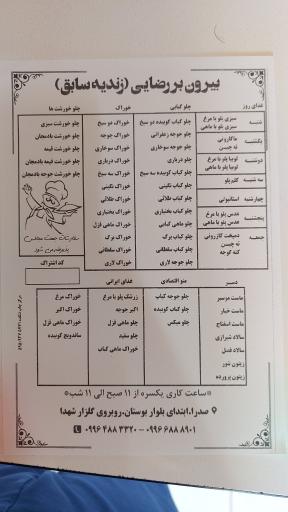 بیرون بر رضایی (زندیه سابق)
غذای روز
چلو کبابی
خوراک
چلو خورشت ها
شنبه
سبزی پلو با مرغ
سبزی پلو با ماهی
یکشنبه
ماکارونی
ته چین
دوشنبه
لوبیا پلو با مرغ
لوبیا پلو با ماهی
سه شنبه
کلم پلو
چهارشنبه
استانبولی
پنجشنبه
عدس پلو با مرغ
عدس پلو با ماهی
جمعه
دمپخت کازرونی
ته چین
کته گوجه
چلو کباب کوبیده دو سیخ
چلو جوجه زعفرانی
چلو جوجه سوخاری
چلو درباری
چلو کباب کوبیده سه سیخ
چلو کباب نگینی
چلو کباب طلائی
چلو کباب بختیاری
چلو ماهی کبابی
چلو کباب برگ
چلو کباب سلطانی
چلو جوجه لاری
خوراک دو سیخ
خوراک جوجه
خوراک سوخاری
خوراک درباری
خوراک سه سیخ
خوراک نگینی
خوراک طلائی
خوراک بختیاری
خوراک ماهی قزل
خوراک برگ
خوراک سلطانی
خوراک لاری
چلو خورشت سبزی
چلو خورشت بادمجان
چلو خورشت قیمه
چلو خورشت قیمه بادمجان
چلو خورشت جوجه بادمجان
سفارشات جهت مجالس
پذیرفته می شود
کد اشتراک
دسر
منو اقتصادی
غذای ایرانی
ماست موسیر
ماست خیار
ماست اسفناج
سالاد شیرازی
سالاد فصل
زیتون شور
زیتون پرورده
چلو جوجه کباب
چلو کباب کوبیده
چلو میکس
زرشک پلو با مرغ
اکبر جوجه
چلو ماهی قزل
چلو سفید
خوراک ماهی کباب
خوراک مرغ
خوراک اکبر
خوراک ماهی قزل
ساندویچ کوبیده
*ساعت کاری یکسره از ۱۱ صبح الی ۱۱ شب*
صدرا، ابتدای بلوار بوستان، روبروی گلزار شهدا
۰۹۹۶ ۴۸۸ ۳۳۲۰ - ۰۹۹۶ ۶۸۸ ۸۹۰۱